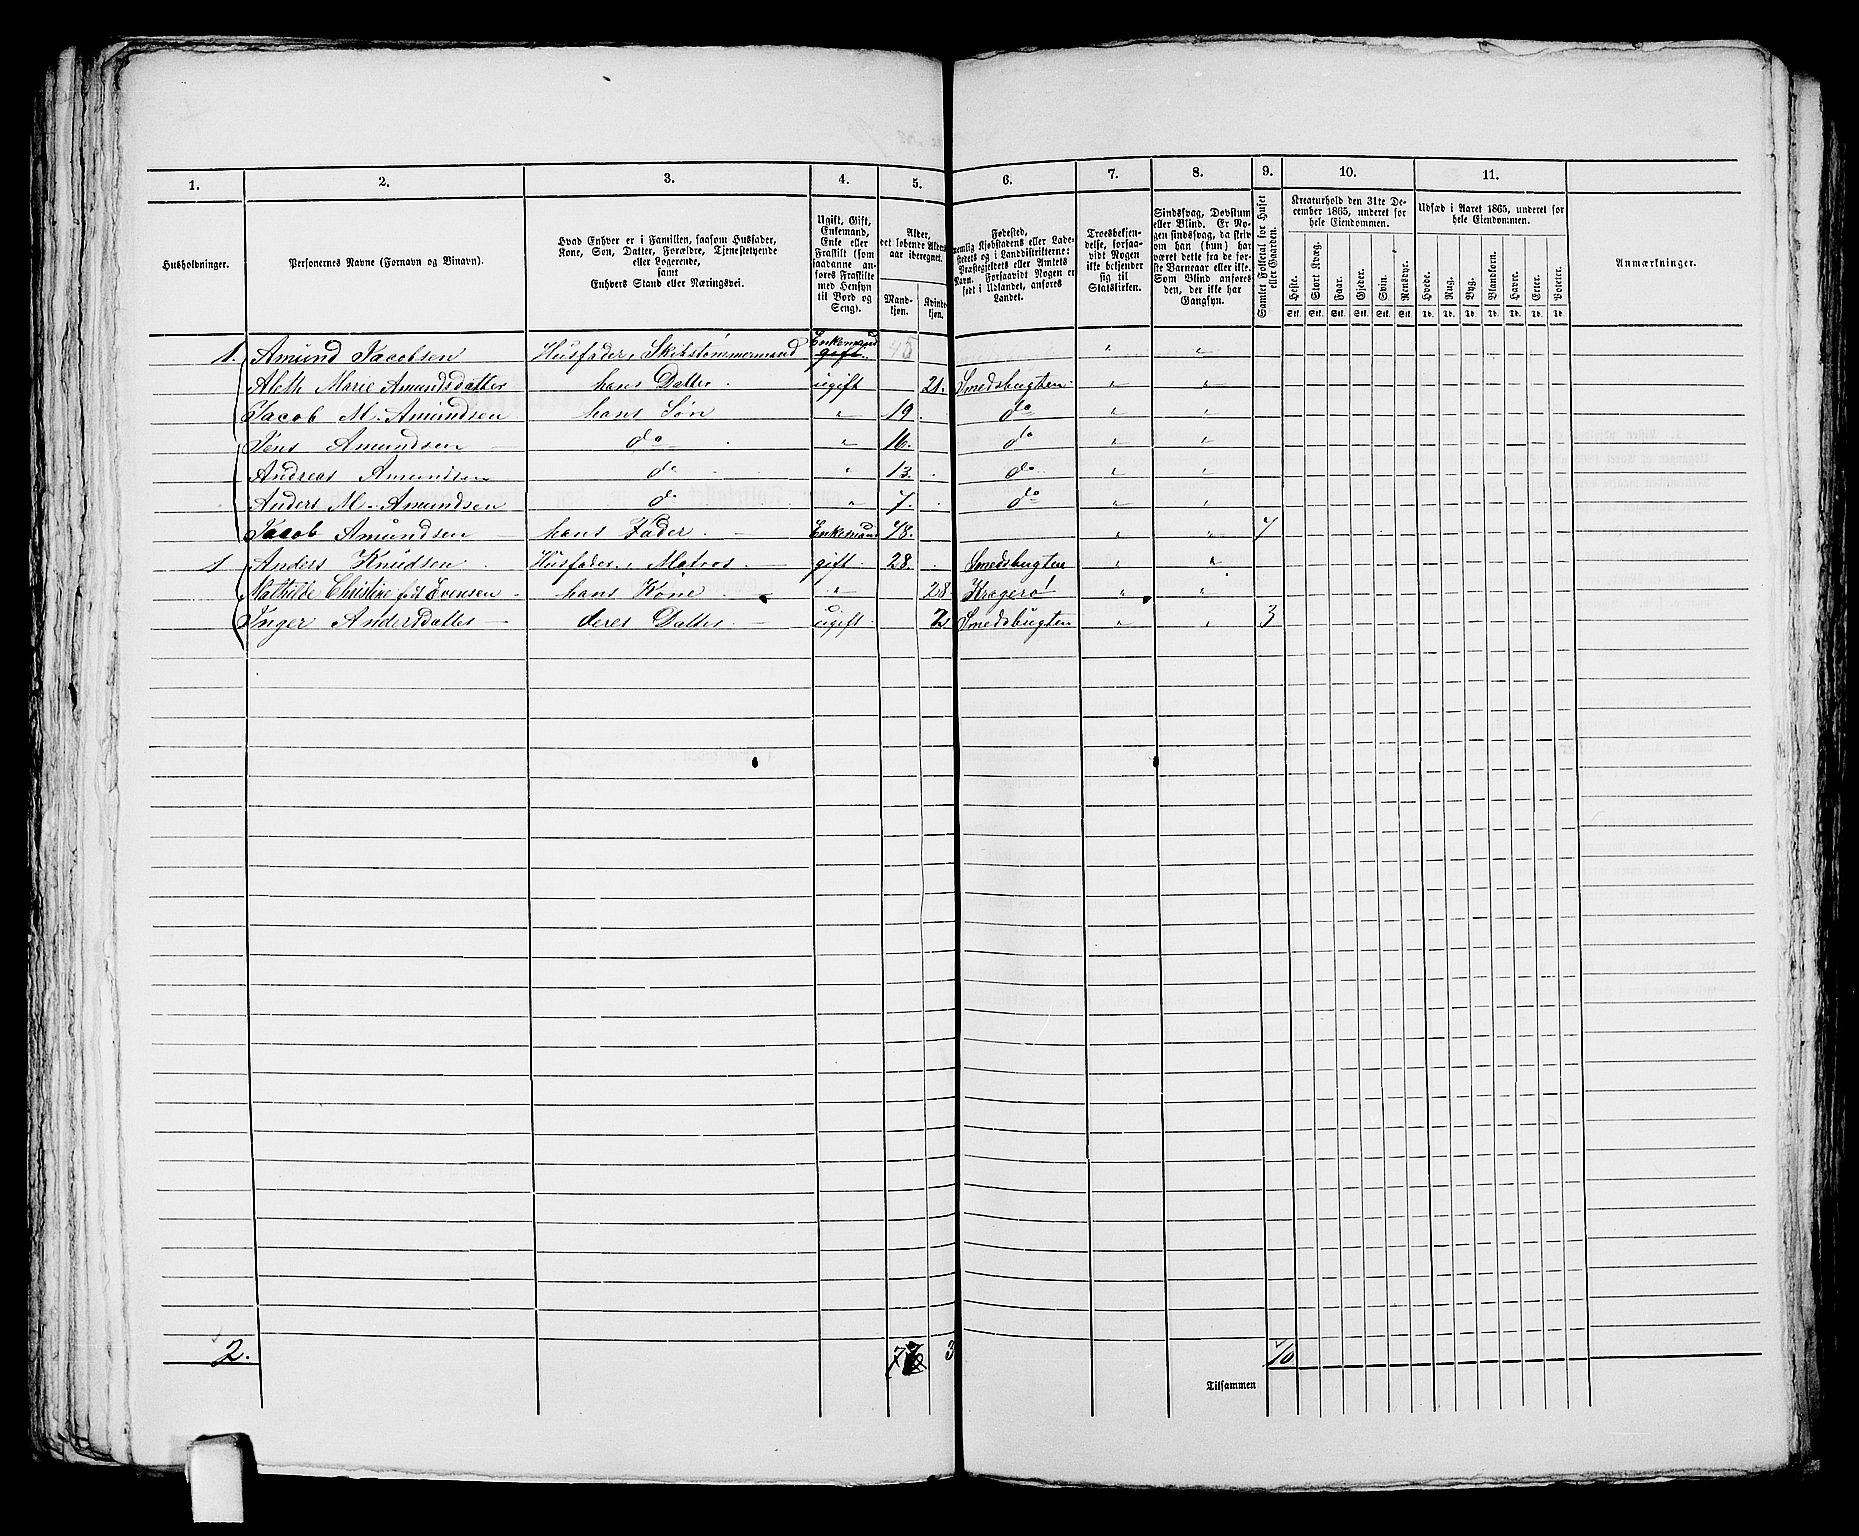 1. 2. 3. 4. 5. 6. 7. 8. 9. 10. 11.
Husholdninger.
Personernes Navne (Fornavn og Binavn).
Hvad Enhver er i Familien, saasom Husfader,
Kone, Søn, Datter, Forældre, Tjenestetyende
eller Logerende,
samt
Enhvers Stand eller Næringsvei.
Ugift, Gift,
Enkemand,
Enke eller
Fraskilt (som
saadanne an-
føres Fraskilte
med Hensyn
til Bord og
Seng).
Alder,
det løbende Alders-
aar iberegnet.
Mand-
kjøn.
Kvinde-
kjøn.
Fødested,
nemlig Kjøbstadens eller Lade-
stedets og i Landdistrikterne:
Præstegjeldets eller Amtets
Navn. Forsaavidt Nogen er
født i Udlandet, anføres
Landet.
Troesbekjen-
delse, forsaa-
vidt Nogen
ikke bekjender
sig til
Statskirken.
Sindssvag, Døvstum
eller Blind. Er No-
gen sindssvag, da skriv
om han (hun) har
været dette fra de før-
ste Barneaar eller ikke.
Som Blind anføres
den, der ikke har
Gangsyn.
Samlet Folketal for Huset
eller Gaarden.
Kreaturhold den 31te De-
cember 1865, underet for
hele Eiendommen.
Heste. Stort Kvæg. Faar. Gjeder. Svin. Rensdyr.
Stk. Stk. Stk. Stk. Stk. Stk.
Udsæd i Aaret 1865, underet for
hele Eiendommen.
Hvede. Rug. Byg. Blandkorn. Havre. Erter. Poteter.
Td. Td. Td. Td. Td. Td. Td.
Anmærkninger.
1. Amund Jacobsen Husfader, Skibstømmermand Enkemand gift. 45 " "
Aleth Marie Amundsdatter hans Datter. ugift 21. Smedsbugten. " "
Jacob M. Amundsen hans Søn " 19. do " "
Jens Amundsen do " 16. do " "
Andreas Amundsen do " 13. do " "
Anders M. Amundsen do " 7. do " "
Jacob Amundsen hans Fader Enkemand 78. " " 7
1 Anders Knudsen Husfader, Matros gift 28. Smedsbugten " "
Mathilde Christine fød Evensen hans Kone " 28 Kragerø " "
Inger Andersdatter deres Datter ugift 2 Smedsbugten " " 3
2. 7 3 10
Tilsammen